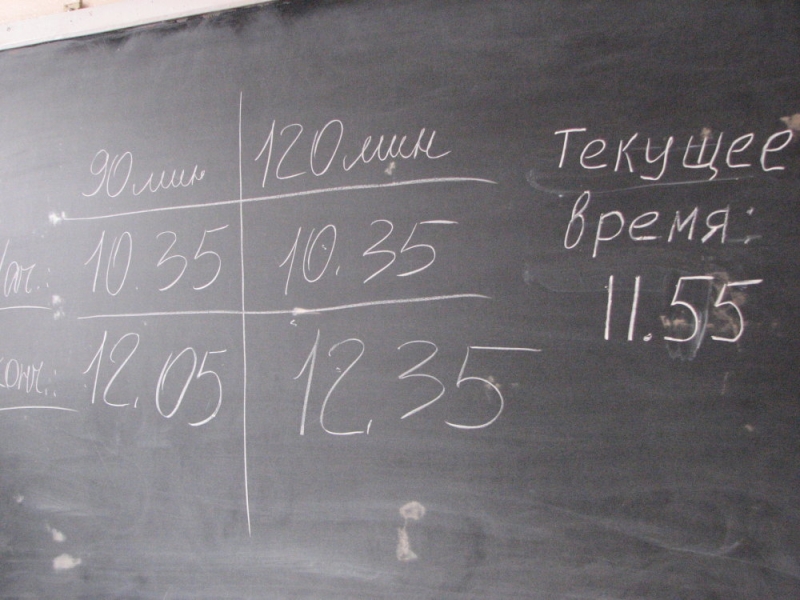 90мин 120мин
Нач.: 10.35 10.35
Конч.: 12.05 12.35
Текущее
время:
11.55